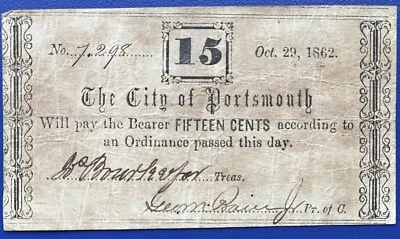 No. 7.298 15 Oct. 29, 1862.
The City of Portsmouth
Will pay the Bearer FIFTEEN CENTS according to
an Ordinance passed this day.
Treas.
Pr. of C.